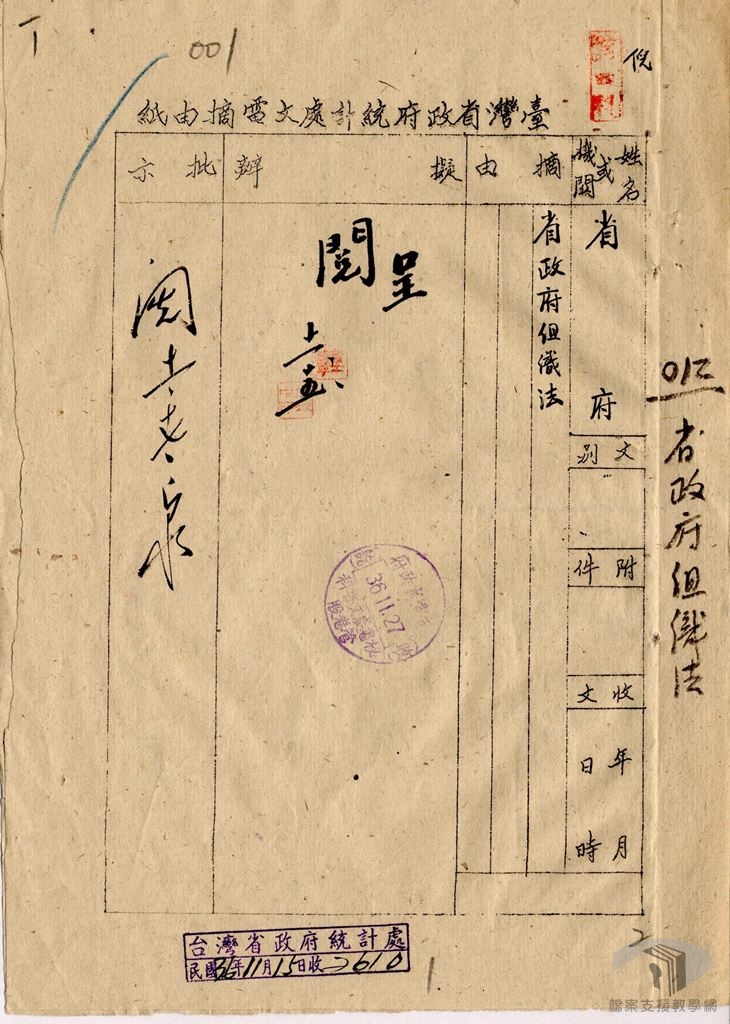 T
001
倪
臺灣省政府統計處文電摘由紙
姓名或機關
省府
文別
附件
收文
年月日時
摘由
省政府組織法
擬辦
呈
閱
批示
閱
36.11.27
012
省政府組織法
台灣省政府統計處
民國36年11月15日收2610
1
2
檔案支援教學網